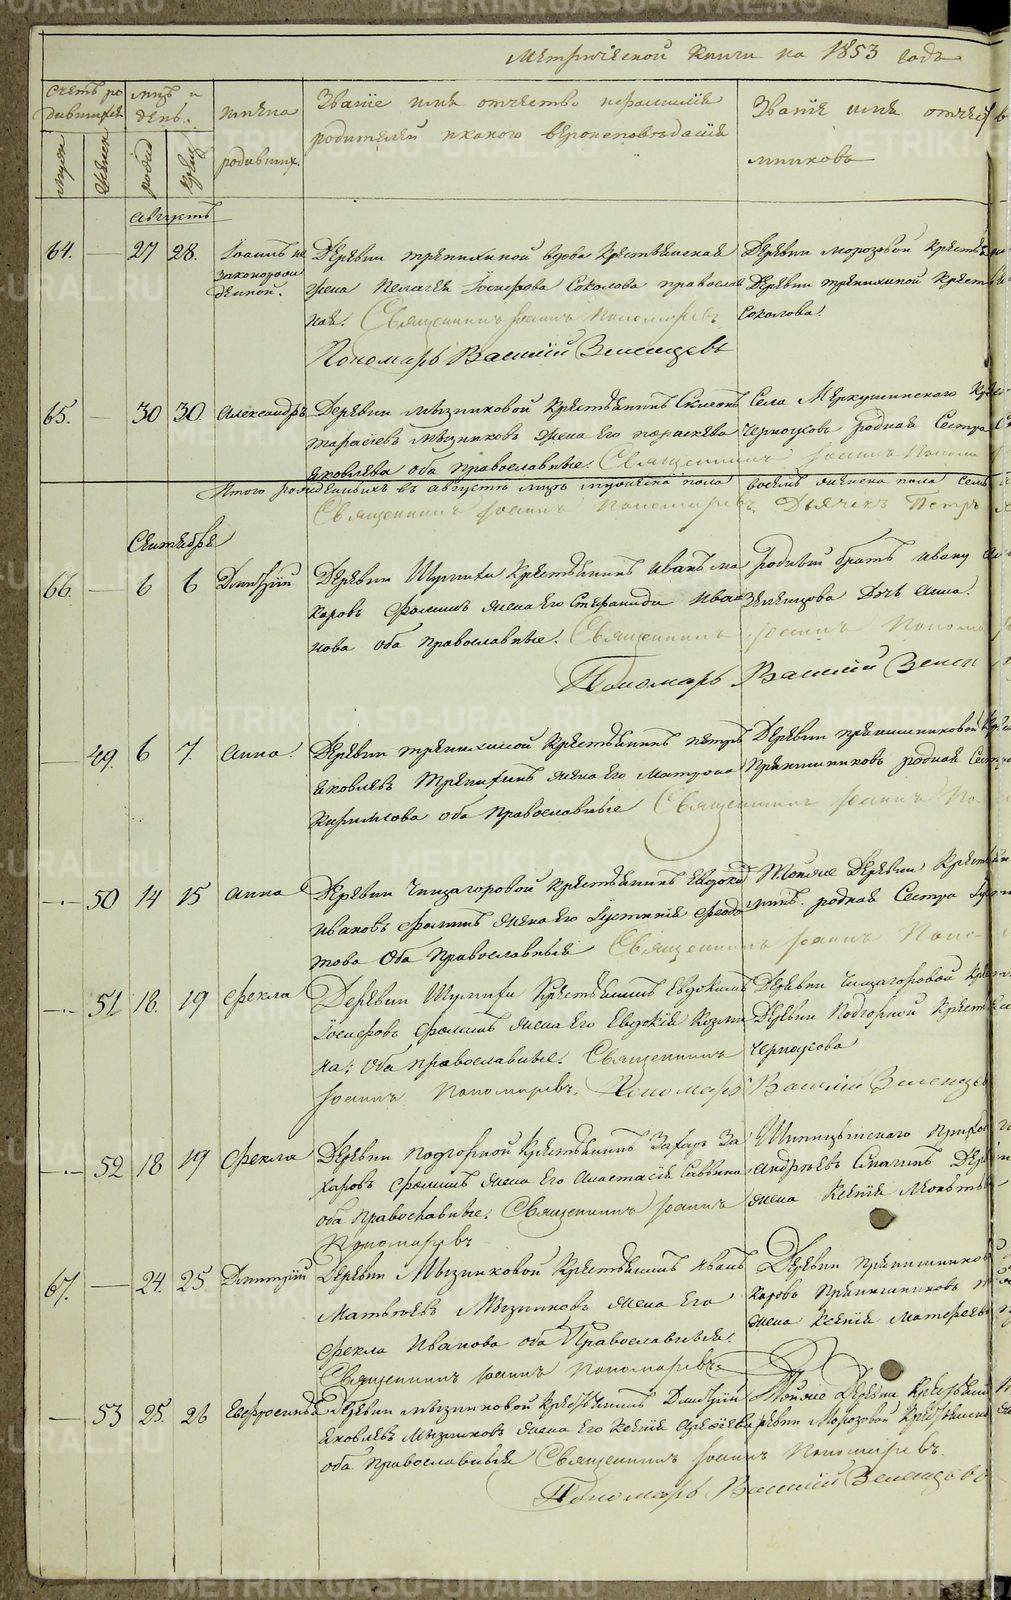 Метрической книги на 1853 годъ
Счетъ ро
дившихся
Мцъ и
день.
имена
родивших.
Званіе имя отчество и фамилія
родителей и какого вѣроисповѣданія
Званіе имя отчест
мниковъ
мужск
женск
родил
крещ
Августъ
64. — 27 28. Іоаннъ не
законорож
денной.
Деревни тренихиной вдова крестьянская
жена Пелагея Іосифова Соколова православ
ная. Священникъ Іоаннъ Пономаревъ.
Пономарь Василій Зеленцовъ
Деревни Морозовой крестьян
Деревни тренихиной крест
Соколова.
65. — 30 30. Александръ
Деревни мызниковой крестьянинъ
Тарасьевъ Мызниковъ жена его параскева
Яковлева оба православные. Священникъ Іоаннъ Поном
Села Меркушинскаго крес
Черноусовъ родная сестра
Итого рожденныхъ въ августѣ мцѣ мужеска пола восемь женска пола семь
Священникъ Іоаннъ Пономаревъ. Дьячекъ Петръ
Сентябрь
66. — 6 6 Димитрій
Деревни Шумихи крестьянинъ Иванъ ма
каровъ Фоминъ жена его Стефанида Ива
нова оба православные. Священникъ Іоаннъ Поном
Пономарь Василій Зелен
Родный братъ Ивану
Зеленцова дочь Анна.
— 49. 6 7. Анна.
Деревни тренихиной крестьянинъ петръ
Яковлевъ Тренихинъ жена его Матрона
Кирилова оба православные Священникъ Іоаннъ По
Деревни прянишниковой кр
Прянишниковъ родная сест
— 50 14 15 Анна
Деревни Чизагоровой крестьянинъ Евдоки
Ивановъ Фоминъ жена его Іустинія Федо
това оба православныя Священникъ Іоаннъ Поно
Тойже деревни крестьян
минъ. родная сестра
— 51 18. 19 Фекла
Деревни Шумихи крестьянинъ Евдокимъ
Іосифовъ Фоминъ жена его Евдокія Козми
на; оба православные. Священникъ
Іоаннъ Пономаревъ. Пономарь Василій Зеленцов
Деревни Чизагоровой кре
Деревни Подгорной крестья
Черноусова
— 52 18 19 Фекла
Деревни подгорной крестьянинъ Захаръ За
харовъ Фоминъ жена его Анастасія Саввина
оба православные. Священникъ Іоаннъ
Пономаревъ
Шипицынскаго прихо
Андреевъ Спагинъ Дер
жена Ксенія
67. — 24. 25 Димитрій
Деревни Мызниковой крестьянинъ Иванъ
Матвѣевъ Мызниковъ жена его
Фекла Иванова оба православныя.
Священникъ Іоаннъ Пономаревъ.
Деревни прянишников
каровъ Прянишниковъ
жена Ксенія Матфеев
— 53 25. 26 Евфросинія
Деревни мызниковой крестьянинъ Димитрій
Яковлевъ Мызниковъ жена его Ксенія
оба православныя Священникъ Іоаннъ Пономаревъ.
Пономарь Василій Зеленцовъ
Тойже деревни крестьянин
ревни Морозовой крестьянин